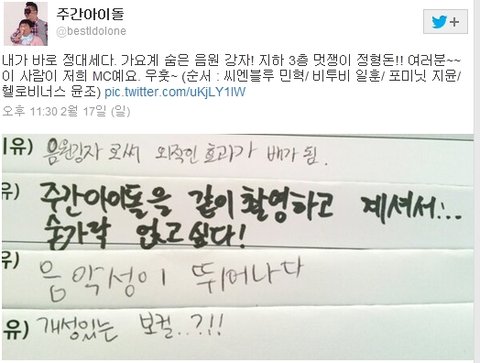 주간아이돌
@bestidolone
내가 바로 정대세다. 가요계 숨은 음원 강자! 지하 3층 멋쟁이 정형돈!! 여러분~~
이 사람이 저희 MC예요. 우훗~ (순서 : 씨엔블루 민혁/ 비투비 일훈/ 포미닛 지윤/
헬로비너스 윤조) pic.twitter.com/uKjLY1IW
오후 11:30 2월 17일 (일)
유) 음원강자 로써 외적인 효과가 배가 됨.
유) 주간아이돌을 같이 촬영하고 계셔서...
숟가락 얹고싶다!
유) 음악성이 뛰어나다
유) 개성있는 보컬..?!!!